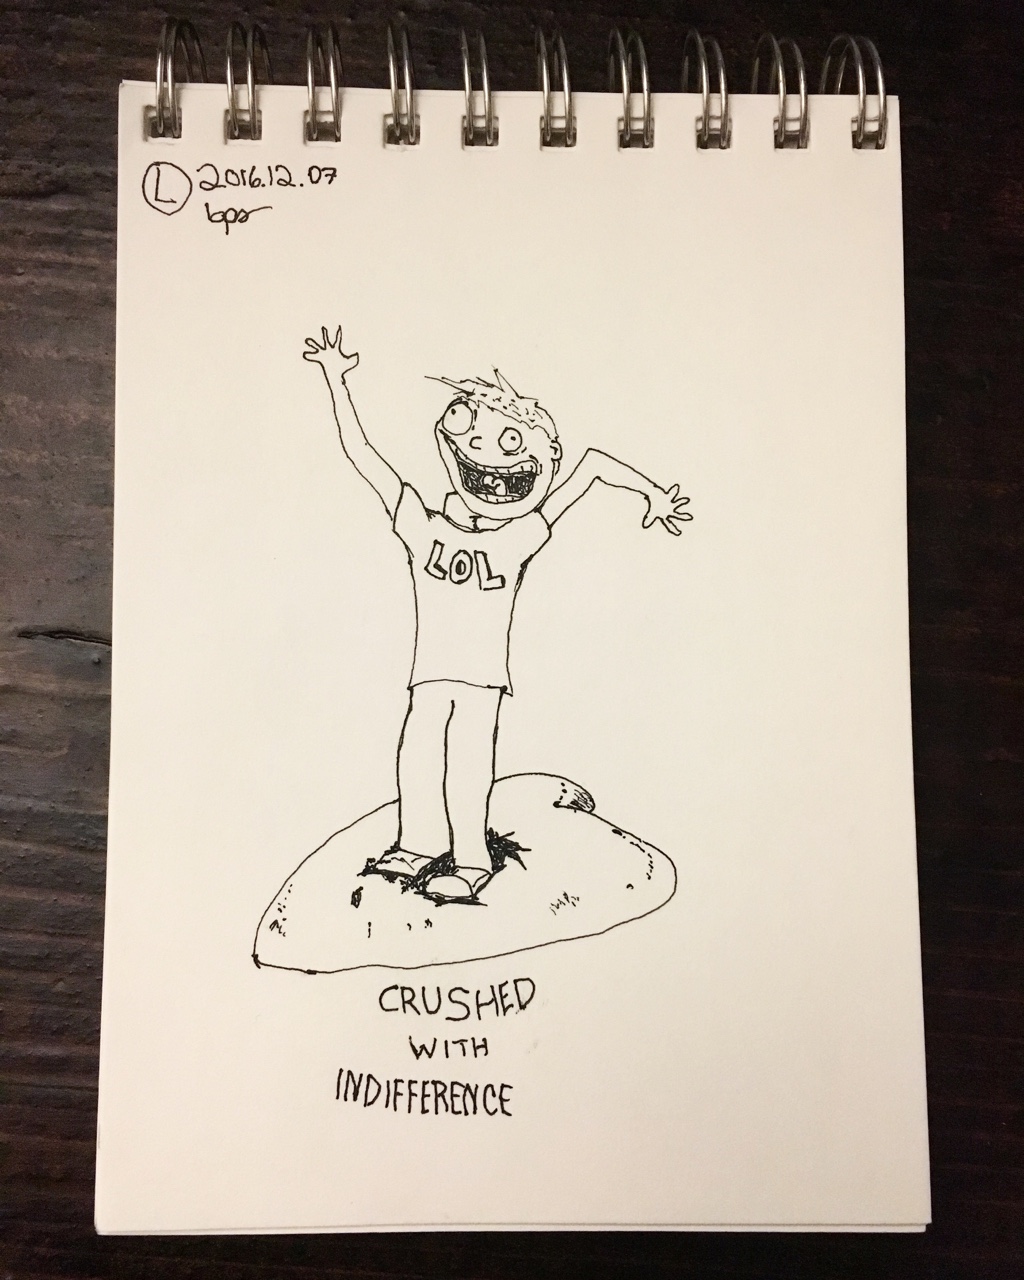 L 2016.12.07
bps
LOL
CRUSHED
WITH
INDIFFERENCE